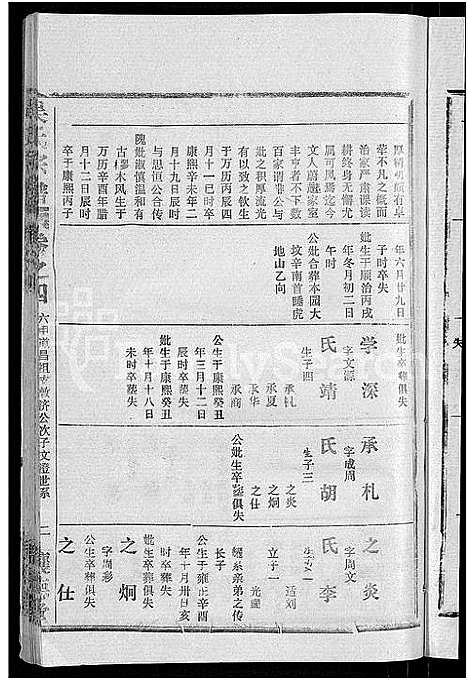 荤不凡之概而
治家严肃课读
耕终身无懈尤
属可风焉迄今
文人蔚起家室
丰亨者不下数
百家谓非公与
妣之积厚流光
有以致之钦生
于万历丙辰四
月十一巳时卒
康熙辛未年二
月十九日辰时
与思恒公合传
隗妣淑慎温和有
古樛木风生于
万历辛酉年腊
月十二日辰时
卒于康熙丙子
年六月廿九日
子时卒失
妣生于顺治丙戌
年冬月初二日
午时
公妣合葬本园大
坟辛山首睡虎
地山乙向
妣生卒葬俱失
学深
字文源
氏靖
生子四
承札
承夏
承华
承商
公生于康熙癸丑
年三月十二日
辰时卒葬失
妣生于康熙癸丑
年十月十八日
未时卒葬失
承札
字成周
氏胡
生子三
之炎
之炯
之仕
公妣生卒葬俱失
之炎
字周文
氏李
生子二
适刘
立子一
光
继系亲弟之传
长子
公生于雍正辛酉
年十月卅日亥
时卒葬失
妣生卒葬俱失
之炯
字周彩
公生卒葬俱失
之仕
六甲道昌祖支教济公次子文澄世系
二